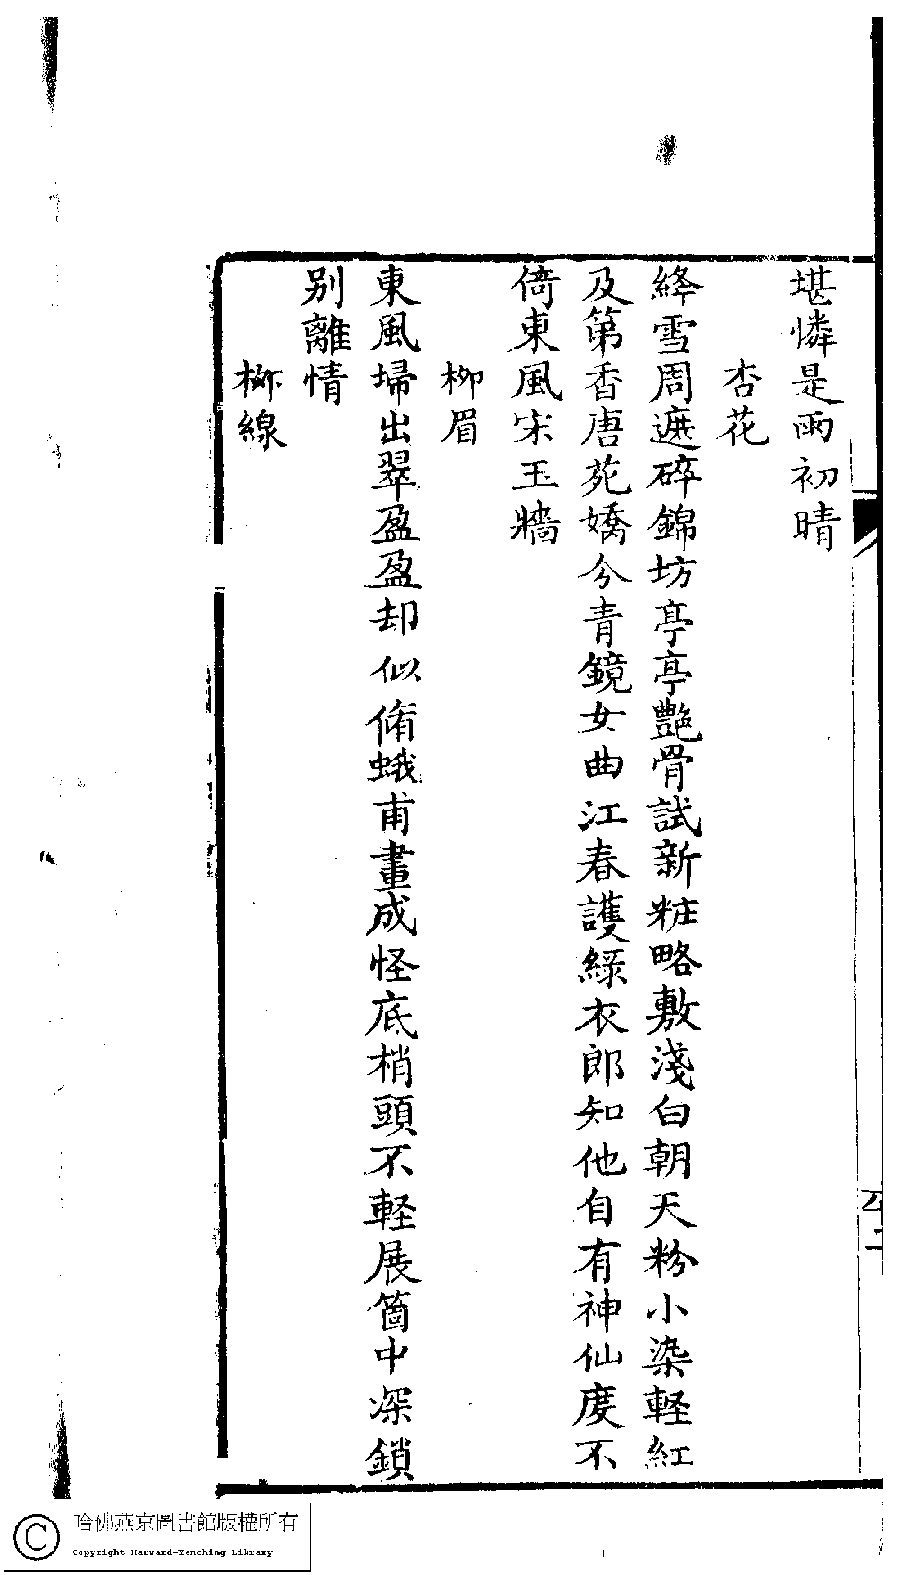 堪憐是雨初晴
杏花
絳雪周遮碎錦坊亭亭艷骨試新粧略敷淺白朝天粉小染輕紅
及第香唐苑嬌分青鏡女曲江春護綠衣郎知他自有神仙度不
倚東風宋玉牆
柳眉
東風埽出翠盈盈却似脩蛾甫畫成怪底梢頭不輕展箇中深鎖
别離情
柳線
哈佛燕京圖書館版權所有
Copyright Harvard-Yenching Library